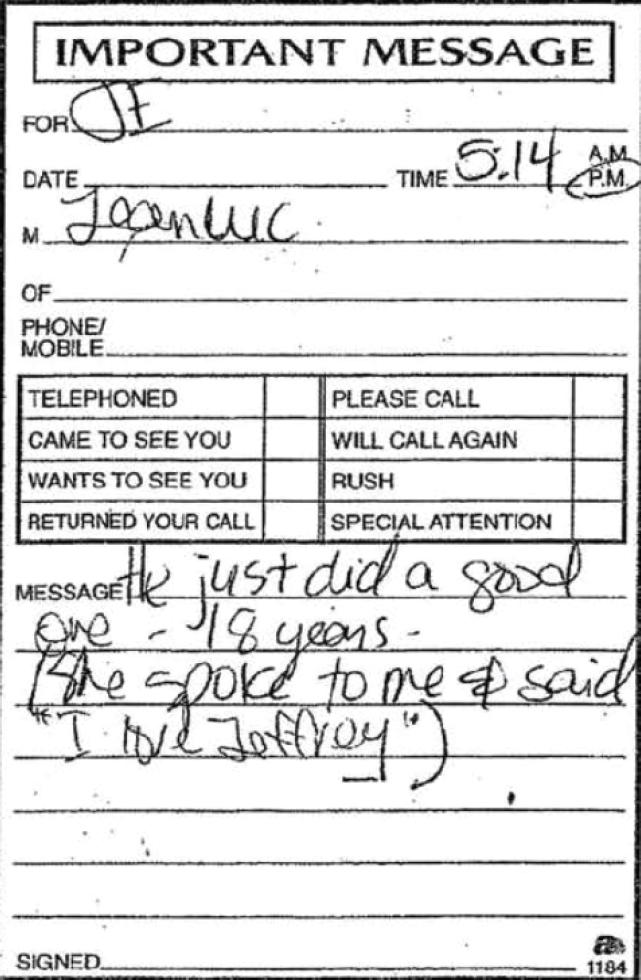 IMPORTANT MESSAGE
FOR JE
DATE TIME 5:14 A.M.
P.M.
M Jean Luc
OF
PHONE/
MOBILE
TELEPHONED PLEASE CALL
CAME TO SEE YOU WILL CALL AGAIN
WANTS TO SEE YOU RUSH
RETURNED YOUR CALL SPECIAL ATTENTION
MESSAGE He just did a good
one - 18 years -
(She spoke to me & said
"I love Jeffrey")
SIGNED
1184